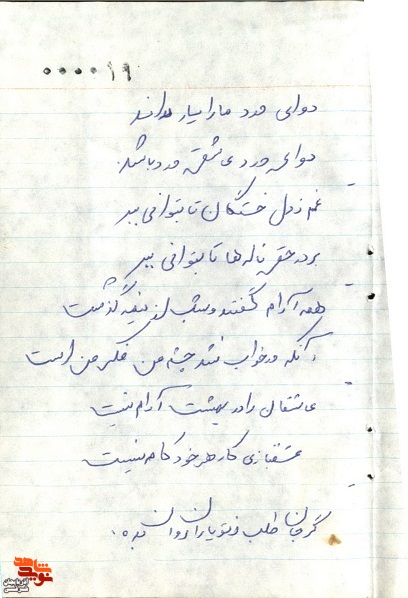 ۰۰۰۰۱۹
دوای درد ما را یار داند
دوای درد عاشق درد باشد
غم ز دل خستگان تا بتوانی ببر
بر در حق ناله ها تا بتوانی ببر
همه آرام گرفتند و شب از نیمه گذشت
آنکه در خواب نشد چشم من و فکر من است
عاشقان را در بهشت آرام نیست
عشقبازی کار هر خودکام نیست
گر جان طلب
نوید شاهد
آذربایجان شرقی